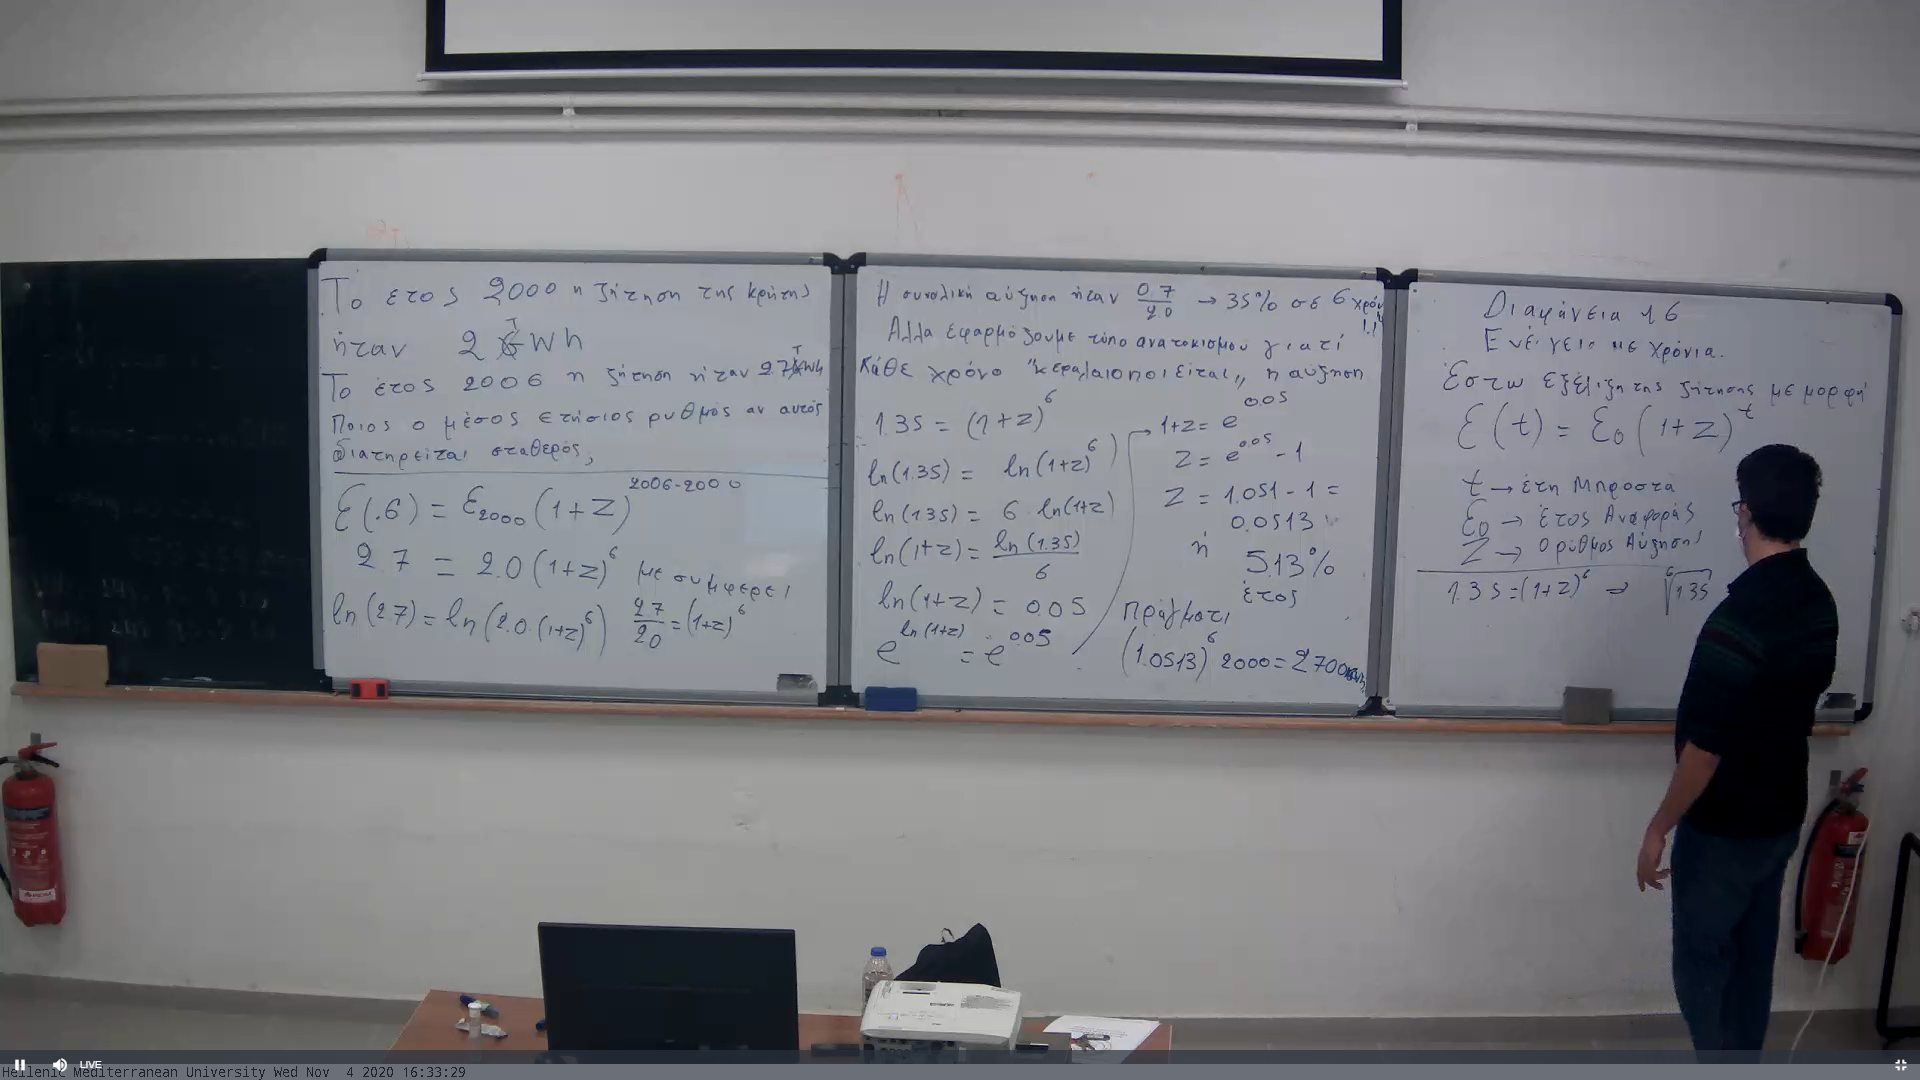 Το έτος 2000 η ζήτηση της Κρήτης
ήταν 2 TWh
Το έτος 2006 η ζήτηση ήταν 2.7 TWh
Ποιος ο μέσος ετήσιος ρυθμός αν αυτός
διατηρείται σταθερός;
Ɛ(.6) = Ɛ2000 (1+z)^2006-2000
2.7 = 2.0 (1+z)^6 με συμφέρει
ln(2.7) = ln(2.0·(1+z)^6) 2.7/2.0 = (1+z)^6
Η συνολική αύξηση ήταν 0.7/2.0 → 35% σε 6 χρόνια !!
Αλλα εφαρμόζουμε τύπο ανατοκισμου γιατί
κάθε χρόνο "κεφαλαιοποιείται" η αύξηση
1.35 = (1+z)^6
ln(1.35) = ln(1+z)^6)
ln(1.35) = 6·ln(1+z)
ln(1+z) = ln(1.35)/6
ln(1+z) = 0.05
e^ln(1+z) = e^0.05
→ 1+z = e^0.05
z = e^0.05 - 1
z = 1.051 - 1 =
0.0513
ή 5.13%
έτος
πράγματι
(1.0513)^6 2000 = 2700
Διαφάνεια 16
Ενέργεια με χρόνια.
Έστω εξέλιξη της ζήτησης με μορφή
Ɛ(t) = Ɛ0 (1+z)^t
t → έτη Μπροστα
Ɛ0 → έτος Αναφοράς
z → Ο ρυθμος Αύξησης
1.35 = (1+z)^6 ⇒ ⁶√1.35
LIVE
Hellenic Mediterranean University Wed Nov 4 2020 16:33:29